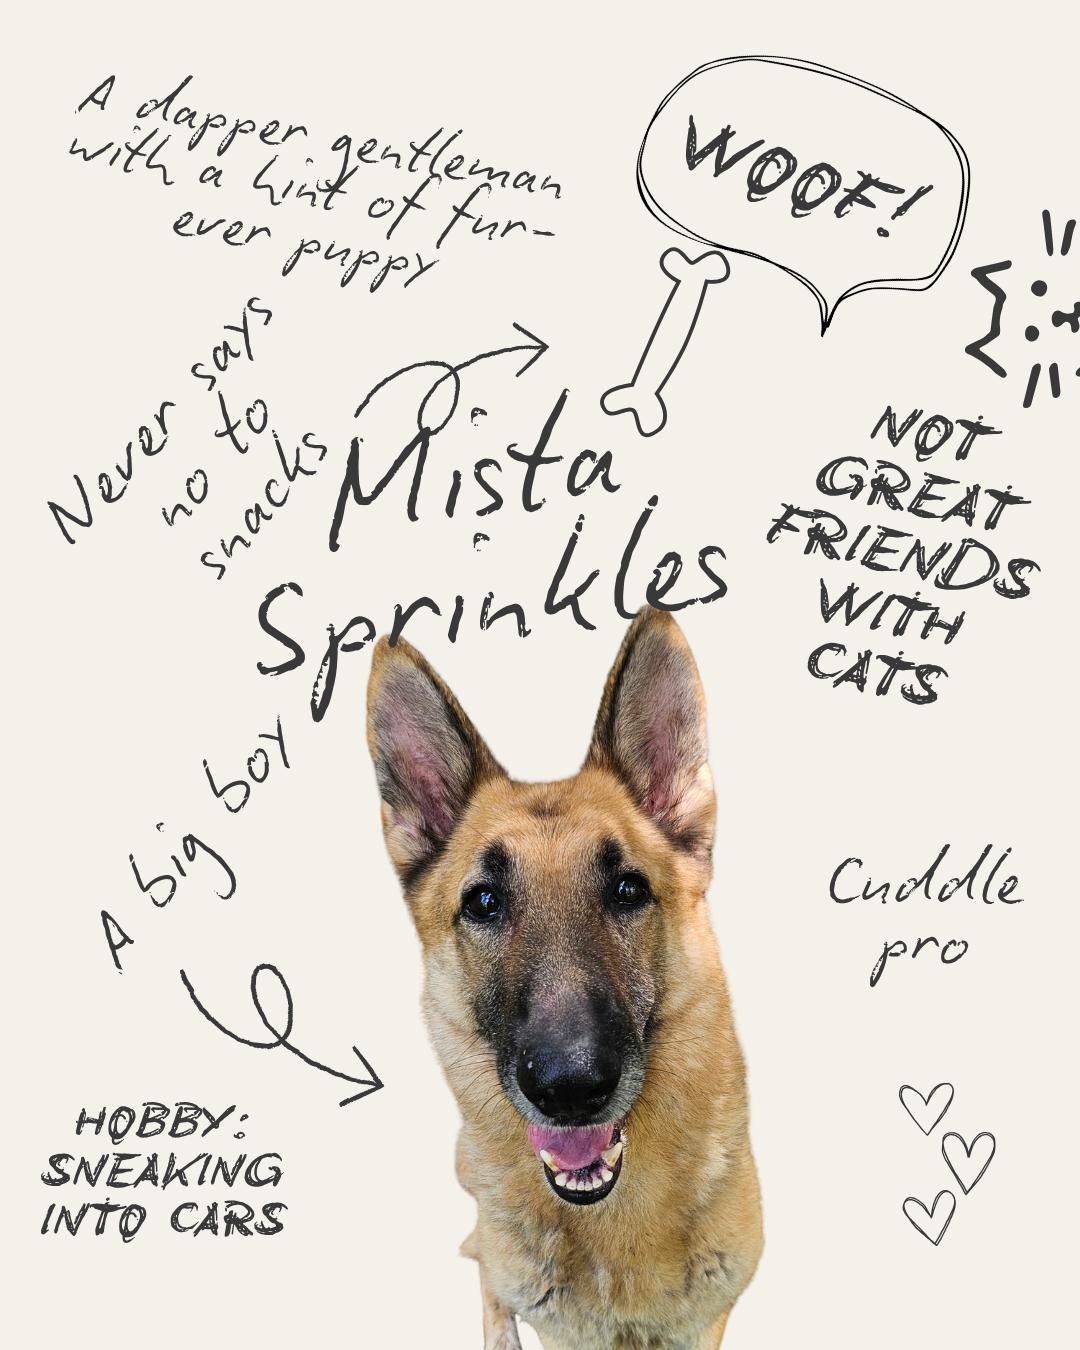 A dapper gentleman
with a hint of fur-
ever puppy
WOOF!
Never says
no to
snacks
Mista
Sprinkles
NOT
GREAT
FRIENDS
WITH
CATS
A big boy
Cuddle
pro
HOBBY:
SNEAKING
INTO CARS